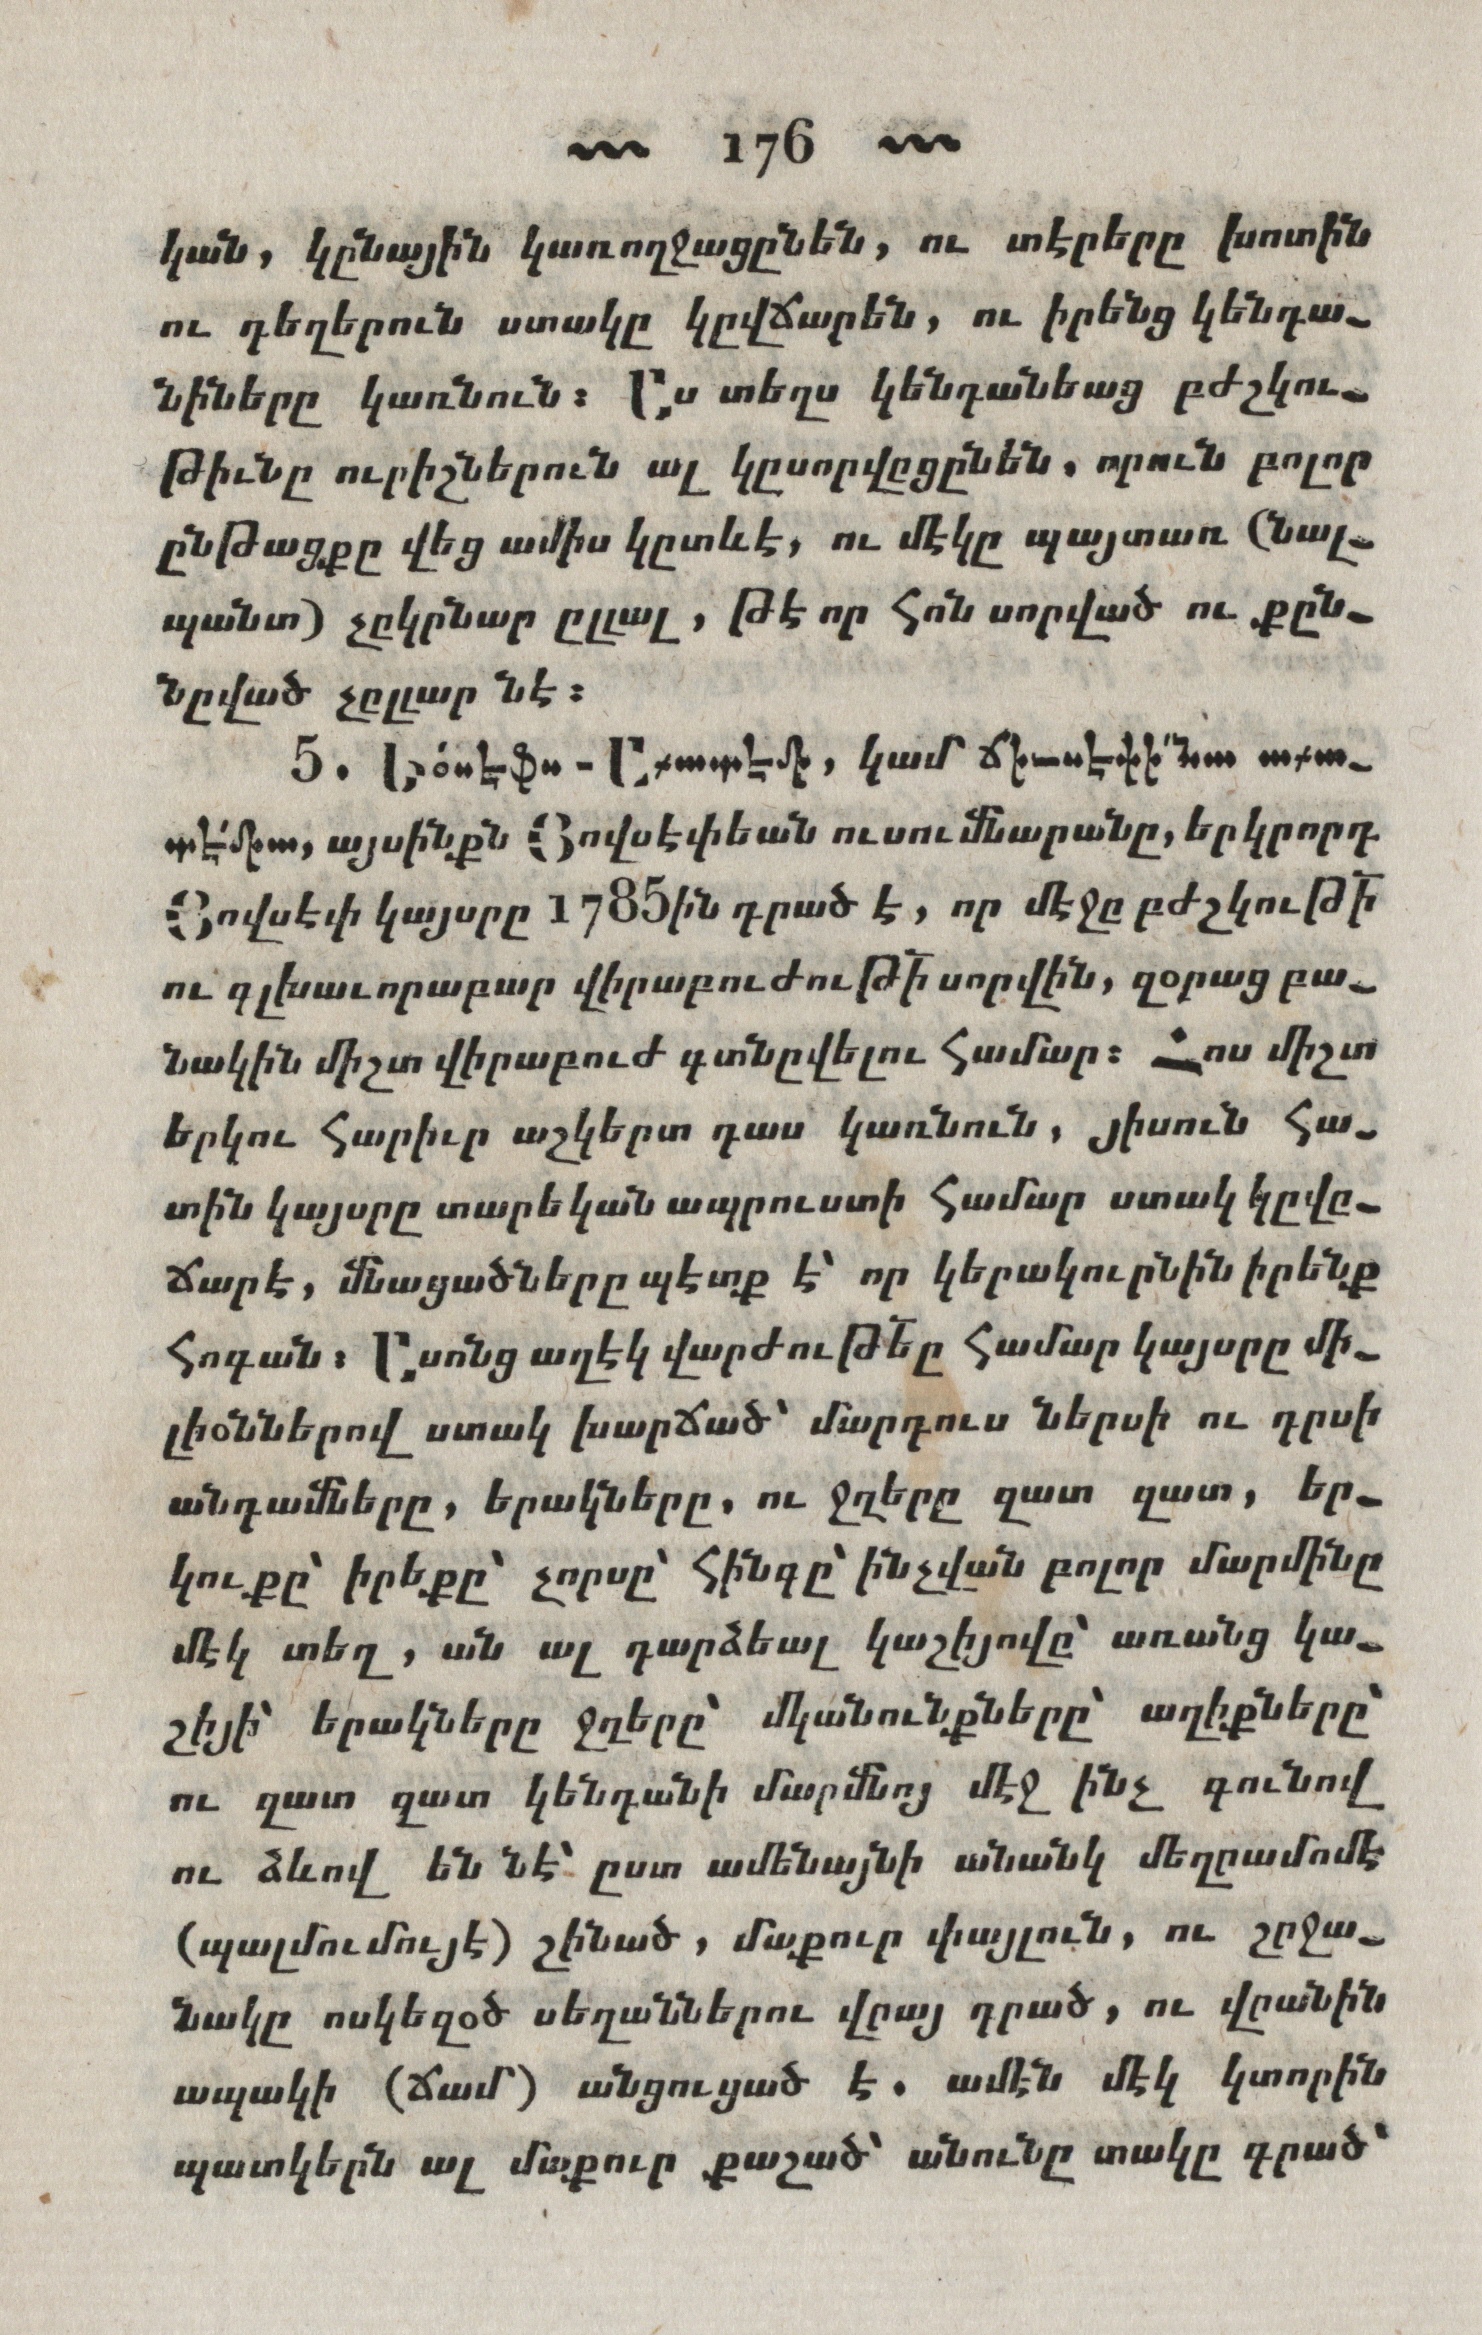 176
կան, կընային կառողջացընեն, ու տէրերը խոտին
ու դեղերուն ստակը կըվճարեն, ու իրենց կենդա-
նիները կառնուն։ Աս տեղս կենդանեաց բժշկու-
թիւնը ուրիշներուն ալ կըսորվըցընեն. որուն բոլոր
ընթացքը վեց ամիս կըտևէ, ու մէկը պայտառ (նալ-
պանտ) չըկրնար ըլլալ, թէ որ հոն սորված ու քըն-
նըված չըլլար նէ։
5. Եօսէֆս-Աքատէմի, կամ ճիւսէփփինա աքա-
տէմիա, այսինքն Յովսէփեան ուսումնարանը, երկրորդ
Յովսէփ կայսրը 1785ին դրած է, որ մէջը բժշկուԹի
ու գլխաւորաբար վիրաբուժուԹի սորվին, զօրաց բա-
նակին միշտ վիրաբուժ գտնըվելու համար։ Հոս միշտ
երկու հարիւր աշկերտ դաս կառնուն, յիսուն հա-
տին կայսրը տարեկան ապրուստի համար ստակ կըվը-
ճարէ, մնացածները պէտք է՝ որ կերակուրնին իրենք
հոգան։ Ասոնց աղէկ վարժուԹեը համար կայսրը մի-
լիօններով ստակ խարճած՝ մարդուս ներսի ու դրսի
անդամները, երակները, ու ջղերը զատ զատ, եր-
կուքը՝ իրեքը՝ չորսը՝ հինգը՝ ինչվան բոլոր մարմինը
մէկ տեղ, ան ալ դարձեալ կաշիյովը՝ առանց կա-
շիյի՝ երակները ջղերը՝ մկանունքները՝ աղիքները՝
ու զատ զատ կենդանի մարմնոյ մէջ ինչ գունով
ու ձևով են նէ՝ ըստ ամենայնի անանկ մեղրամոմէ
(պալմումույէ) շինած, մաքուր փայլուն, ու շըջա-
նակը ոսկեզօծ սեղաններու վըրայ դրած, ու վրանին
ապակի (ճամ) անցուցած է. ամէն մէկ կտորին
պատկերն ալ մաքուր քաշած՝ անունը տակը գրած՝